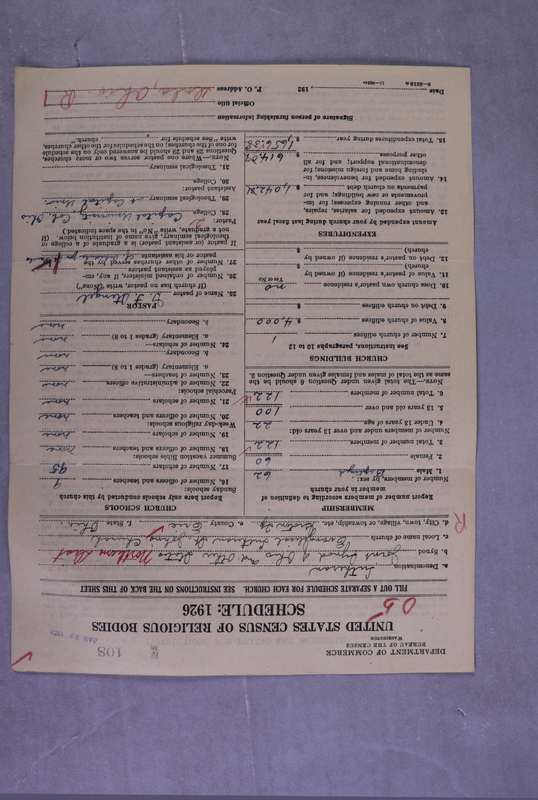 108
DEPARTMENT OF COMMERCE
BUREAU OF THE CENSUS
WASHINGTON
UNITED STATES CENSUS OF RELIGIOUS BODIES
SCHEDULE: 1926
05
FILL OUT A SEPARATE SCHEDULE FOR EACH CHURCH. SEE INSTRUCTIONS ON THE BACK OF THIS SHEET
a. Denomination Lutheran
b. Synod Joint Synod of Ohio and Other States
c. Local name of church Evangelical Lutheran St. Johns Church
d. City, town, village, or township, etc. e. County Erie f. State Ohio
R
MEMBERSHIP
Report number of members according to definition of member in your church
Number of members, by sex: Baptized
1. Male 62
2. Female 60
3. Total number of members 122
Number of members under and over 13 years old:
4. Under 13 years of age 22
5. 13 years old and over 100
6. Total number of members 122
NOTE.—The total given under Question 6 should be the same as the total of males and females given under Question 3.
CHURCH BUILDINGS
See instructions, paragraphs 10 to 12
7. Number of church edifices 1
8. Value of church edifices $ 4,000
9. Debt on church edifices $
10. Does church own pastor's residence no
Yes or No
11. Value of pastor's residence (if owned by church) $
12. Debt on pastor's residence (if owned by church) $
EXPENDITURES
Amount expended by your church during last fiscal year
13. Amount expended for salaries, repairs, and other running expenses; for improvements or new building; and for payments on church debt $ 1,042.31
14. Amount expended for benevolences, including home and foreign missions; for denominational support; and for all other purposes $
15. Total expenditures during year $ 1,656.38
CHURCH SCHOOLS
Report here only schools conducted by this church
Sunday schools:
16. Number of officers and teachers 9
17. Number of scholars 95
Summer vacation Bible schools:
18. Number of officers and teachers none
19. Number of scholars none
Week-day religious schools:
20. Number of officers and teachers none
21. Number of scholars none
Parochial schools:
22. Number of administrative officers none
23. Number of teachers—
a. Elementary (grades 1 to 8) none
b. Secondary none
24. Number of scholars—
a. Elementary (grades 1 to 8) none
b. Secondary none
PASTOR
25. Name of pastor
(If church has no pastor, write "None")
26. Number of ordained ministers, if any, employed as assistant pastors
27. Number of other churches served by the pastor or his assistants
If pastor (or assistant pastor) is a graduate of a college or theological seminary, give name of institution below. (If not a graduate, write "No" in the space indicated.)
Pastor:
28. College Capital University Col. Ohio
29. Theological seminary
Assistant pastor:
30. College
31. Theological seminary
NOTE.—Where one pastor serves two or more churches, Questions 28 and 29 should be answered only on the schedule for one of the churches; on the schedules for the other churches, write "See schedule for church."
Signature of person furnishing information
Official title
Date , 192 P. O. Address Ohio